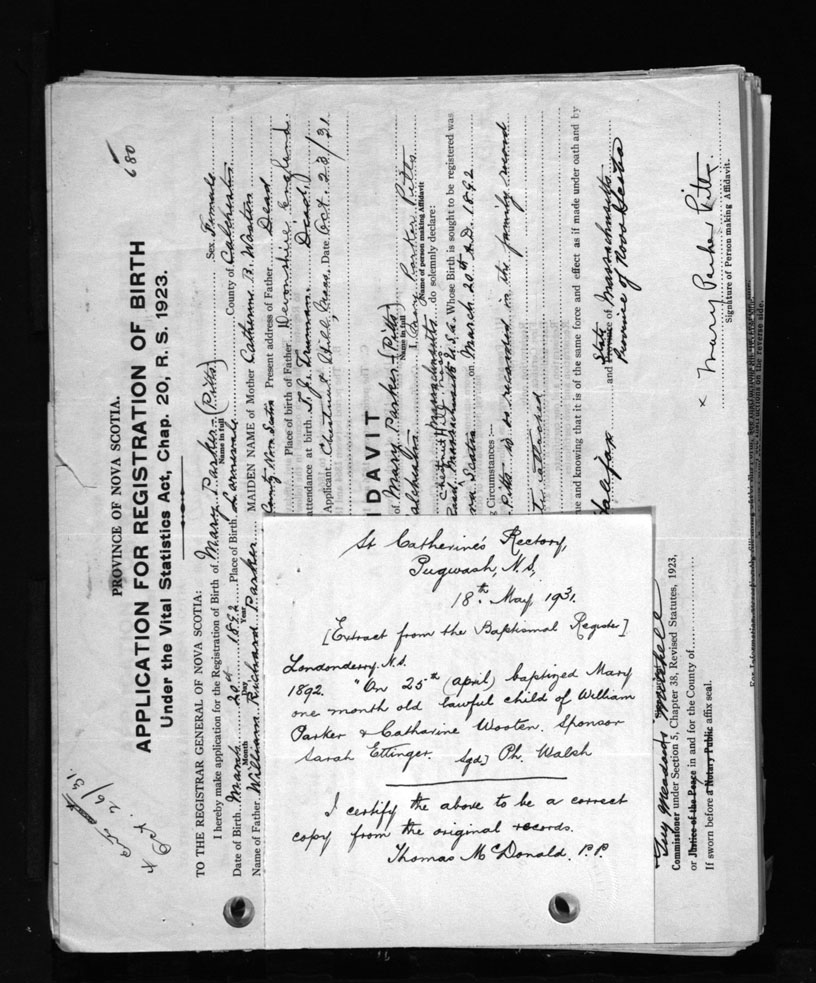 680
PROVINCE OF NOVA SCOTIA.
APPLICATION FOR REGISTRATION OF BIRTH
Under the Vital Statistics Act, Chap. 20, R. S. 1923.
TO THE REGISTRAR GENERAL OF NOVA SCOTIA:
I hereby make application for the Registration of Birth of Mary Parker (Pitts) Sex Female
Name in full
Date of Birth March 20th 1892 Place of Birth County of Colchester
Month Day Year
Name of Father William Richard Parker MAIDEN NAME of Mother Catherine B.
County Nova Scotia Present address of Father Dead
Place of birth of Father Devonshire England
attendance at birth Truman Dead
Applicant Chestnut Hill, Mass. Date Oct. 23/31
Oct. 26/31.
IDAVIT
of Mary Parker (Pitts)
Name in full
I, Mary Parker Pitts
Name of person making Affidavit
Chestnut Hill Massachusetts do solemnly declare:
Massachusetts U.S.A. Whose Birth is sought to be registered was
Scotia on March 20th A.D. 1892
g Circumstances:—
Pitts is as recorded in the family record
attached
ue and knowing that it is of the same force and effect as if made under oath and by
Halifax and State Province of Massachusetts
Province of Nova Scotia
x Mary Parker Pitts.
Signature of Person making Affidavit.
Guy Meadows
Commissioner under Section 5, Chapter 38, Revised Statutes, 1923,
or Justice of the Peace in and for the County of
If sworn before a Notary Public affix seal.
St Catherine's Rectory,
Pugwash, N.S,
18th May 1931.
[Extract from the Baptismal Register]
Londonderry N.S.
1892. "On 25th (april) baptized Mary
one month old lawful child of William
Parker & Catharine Wooten. Sponsor
Sarah Ettinger. Sgd] Ph. Walsh
I certify the above to be a correct
copy from the original records.
Thomas McDonald. P.P.